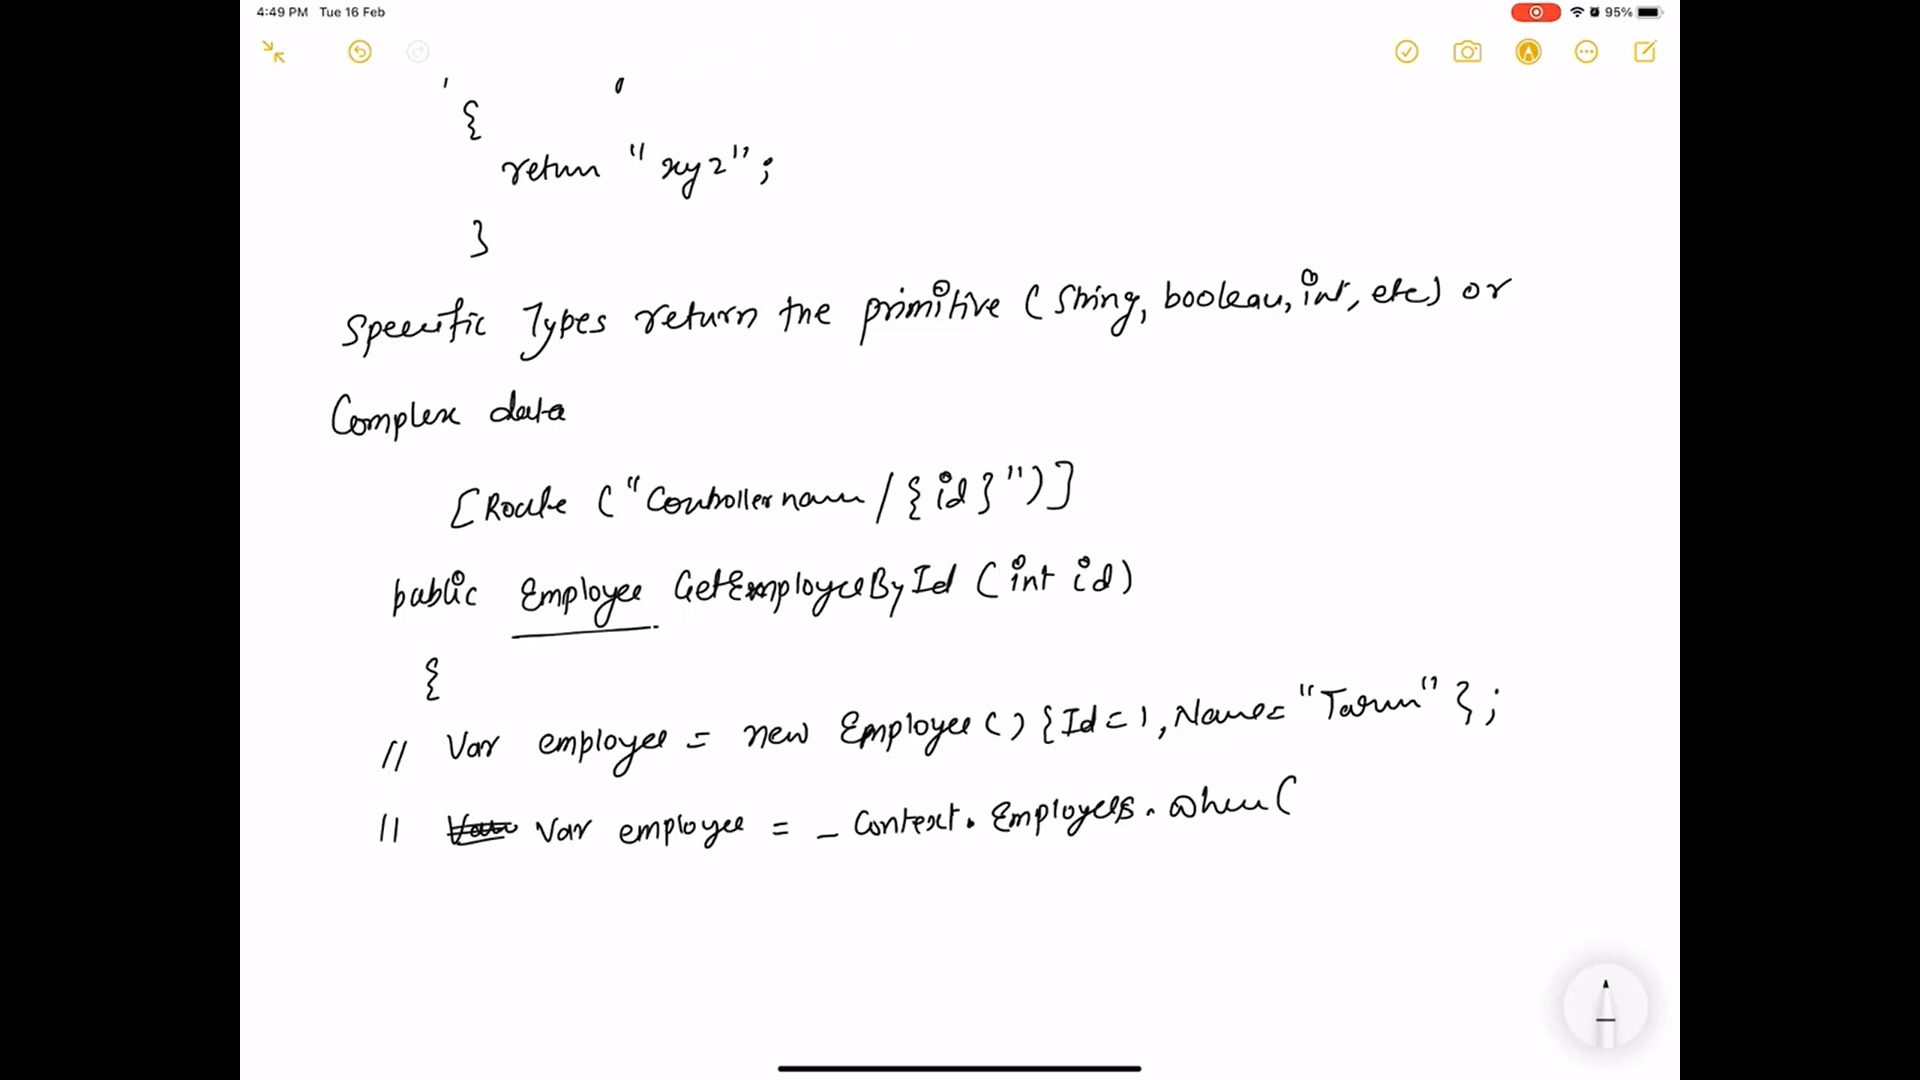 4:49 PM Tue 16 Feb
95%
{
return "xyz";
}
Specific Types return the primitive (String, boolean, int, etc) or
Complex data
[Route ("Controllername/{id}")]
public Employee GetEmployeeById (int id)
{
// Var employee = new Employee() {Id=1, Name="Tarun"};
// Var employee = _Context.Employees.when(